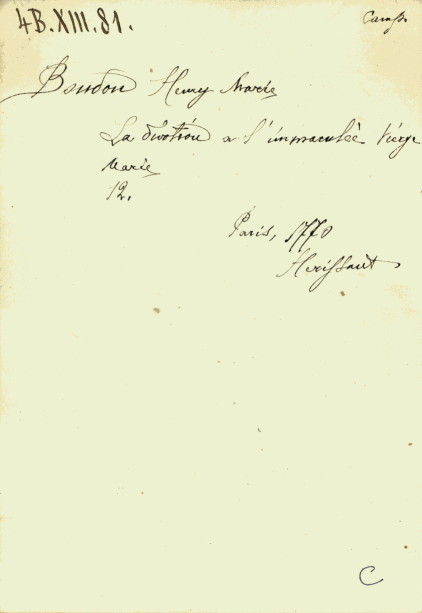 4B.XIII.81.
Boudon Henry Marie
La dévotion a l'immaculée Vierge
Marie
12.
Paris, 1770
Herissant
C